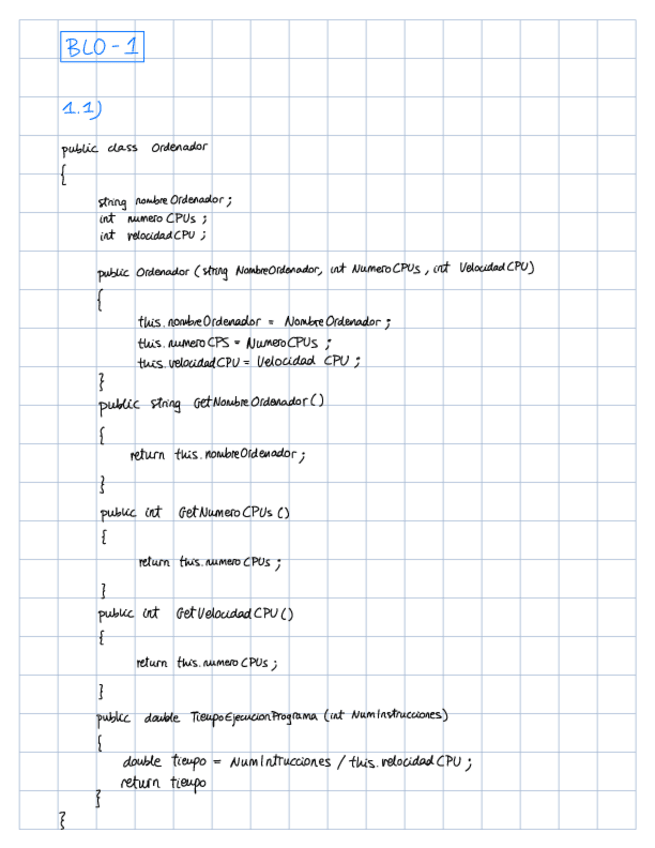 BLO-1
1.1)
public class Ordenador
{
string nombreOrdenador;
int numeroCPUs;
int velocidadCPU;
public Ordenador (string NombreOrdenador, int NumeroCPUs, int VelocidadCPU)
{
this.nombreOrdenador = NombreOrdenador;
this.numeroCPS = NumeroCPUs;
this.velocidadCPU = Velocidad CPU;
}
public string GetNombreOrdenador()
{
return this.nombreOrdenador;
}
public int GetNumeroCPUs()
{
return this.numeroCPUs;
}
public int GetVelocidadCPU()
{
return this.numeroCPUs;
}
public double TiempoEjecucionPrograma (int NumInstrucciones)
{
double tiempo = NumIntrucciones / this.velocidadCPU;
return tiempo
}
}